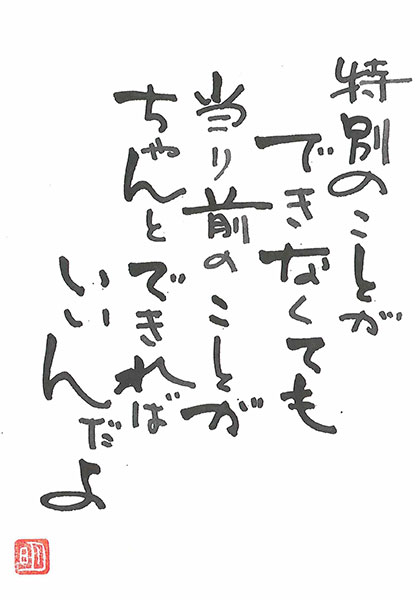 特別のことが
できなくても
当り前のことが
ちゃんとできれば
いいんだよ